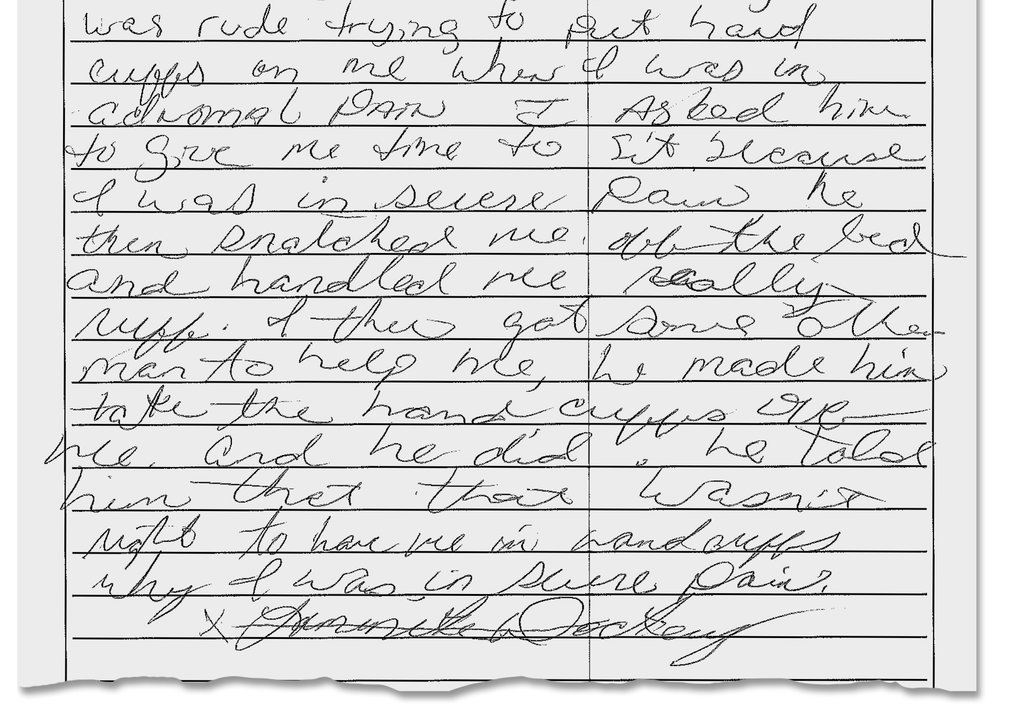 was rude trying to put hand
cupps on me when I was in
adnomal PAIN I Asked him
to give me time to sit because
I was in severe Pain he
then snatched me off the bed
and handled me really
ruff. I then got some other
man to help me, he made him
take the hand cupps off
me. and he did. he told
him that that wasn't
right to have me in handcupps
why I was in severe pain.
X